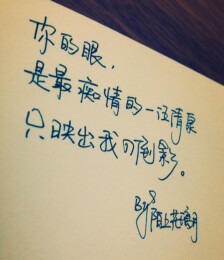 你的眼，
是最痴情的一泓清泉
只映出我的倒影。
By 陌上花满月